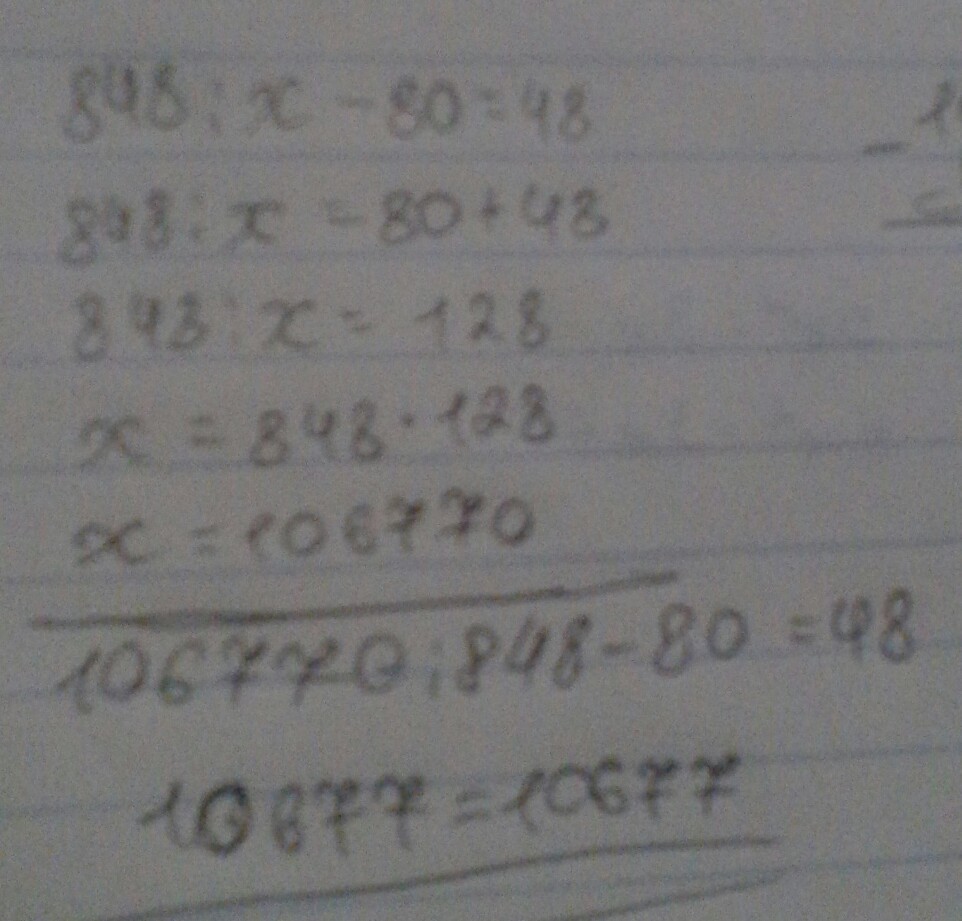 848 : x - 80 = 48
848 : x = 80 + 48
848 : x = 128
x = 848 · 128
x = 106770
106770 : 848 - 80 = 48
10677 = 10677